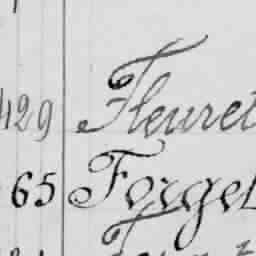 429 Fleuret
65 Forget